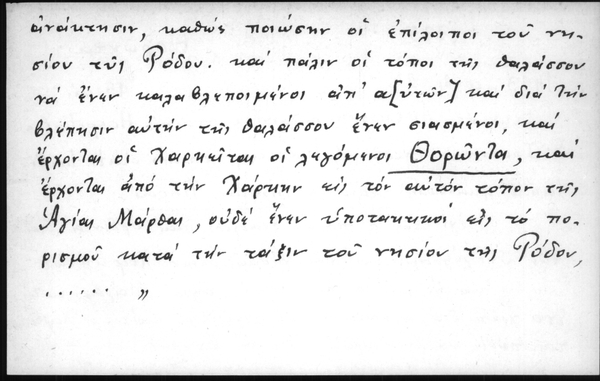 ἀνάκτησιν, καθὼς ποιώσην οἱ ἐπίλοιποι τοῦ νη-
σίου τῆς Ρόδου. καὶ πάλιν οἱ τόποι τῆς θαλάσσου
νὰ ἔνεν καλαβλεποιμένοι ἀπ' α[ὐτῶν] καὶ διὰ τὴν
βλέπησιν αὐτὴν τῆς θαλάσσου ἔνεν σιασμένοι, καὶ
ἔρχονται οἱ Χαρκεῖται οἱ λεγόμενοι Θορῶντα, καὶ
ἔρχονται ἀπὸ τὴν Χάρκην εἰς τὸν αὐτὸν τόπον τῆς
Ἁγίας Μάρθας, οὐδὲ ἔνεν ὑποτακτικοὶ εἰς τὸ πο-
ρισμοῦ κατὰ τὴν τάξιν τοῦ νησίου τῆς Ρόδου,
...... „